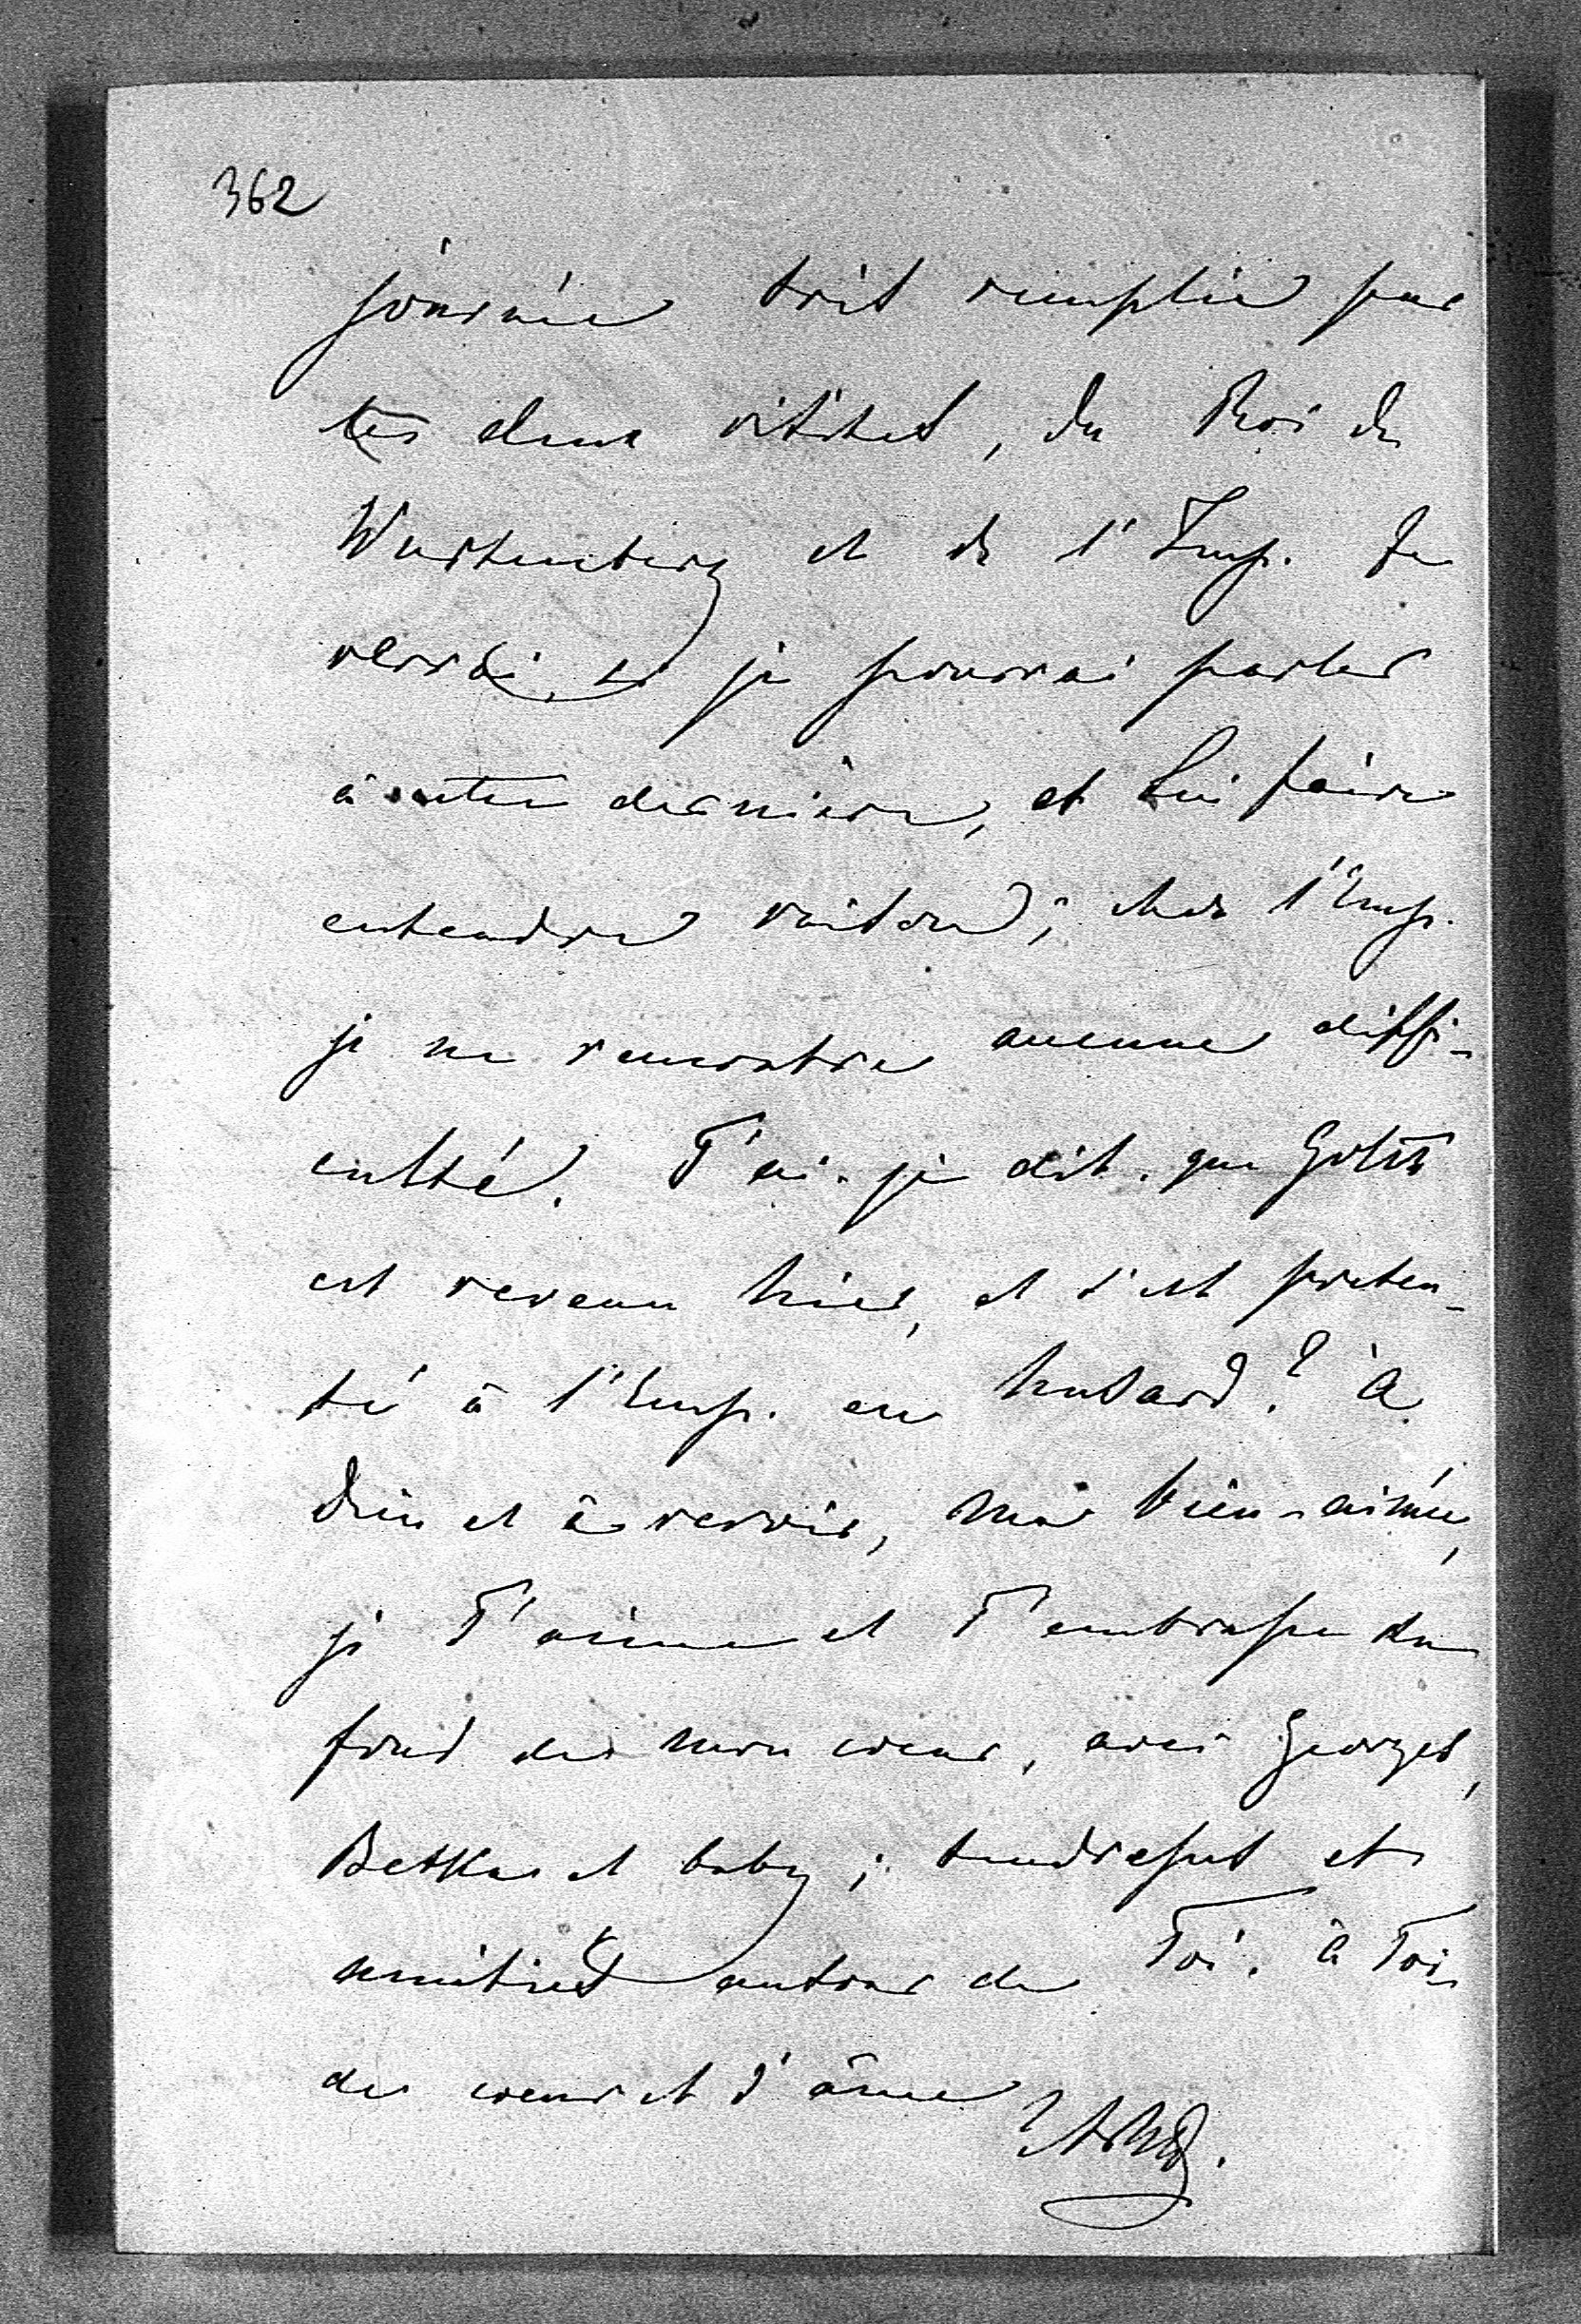 362
journée très remplie par
les deux visites, du Roi de
Wurtemberg et de l'Imp. Je
verrai si je pourrai parler
à cette dernière, et Lui faire
entendre raison; chez l'Emp.
je ne rencontre aucune diffi-
culté. T'ai-je dit que
est revenu hier, et s'est présen-
té à l'Emp. en husard? À
Dieu et à revoir, ma bien-aimée,
je T'aime et T'embrasse du
fond de mon coeur, avec Georges,
Betka et baby; tendresses et
amitiés autour de Toi. À Toi
de coeur et d'âme